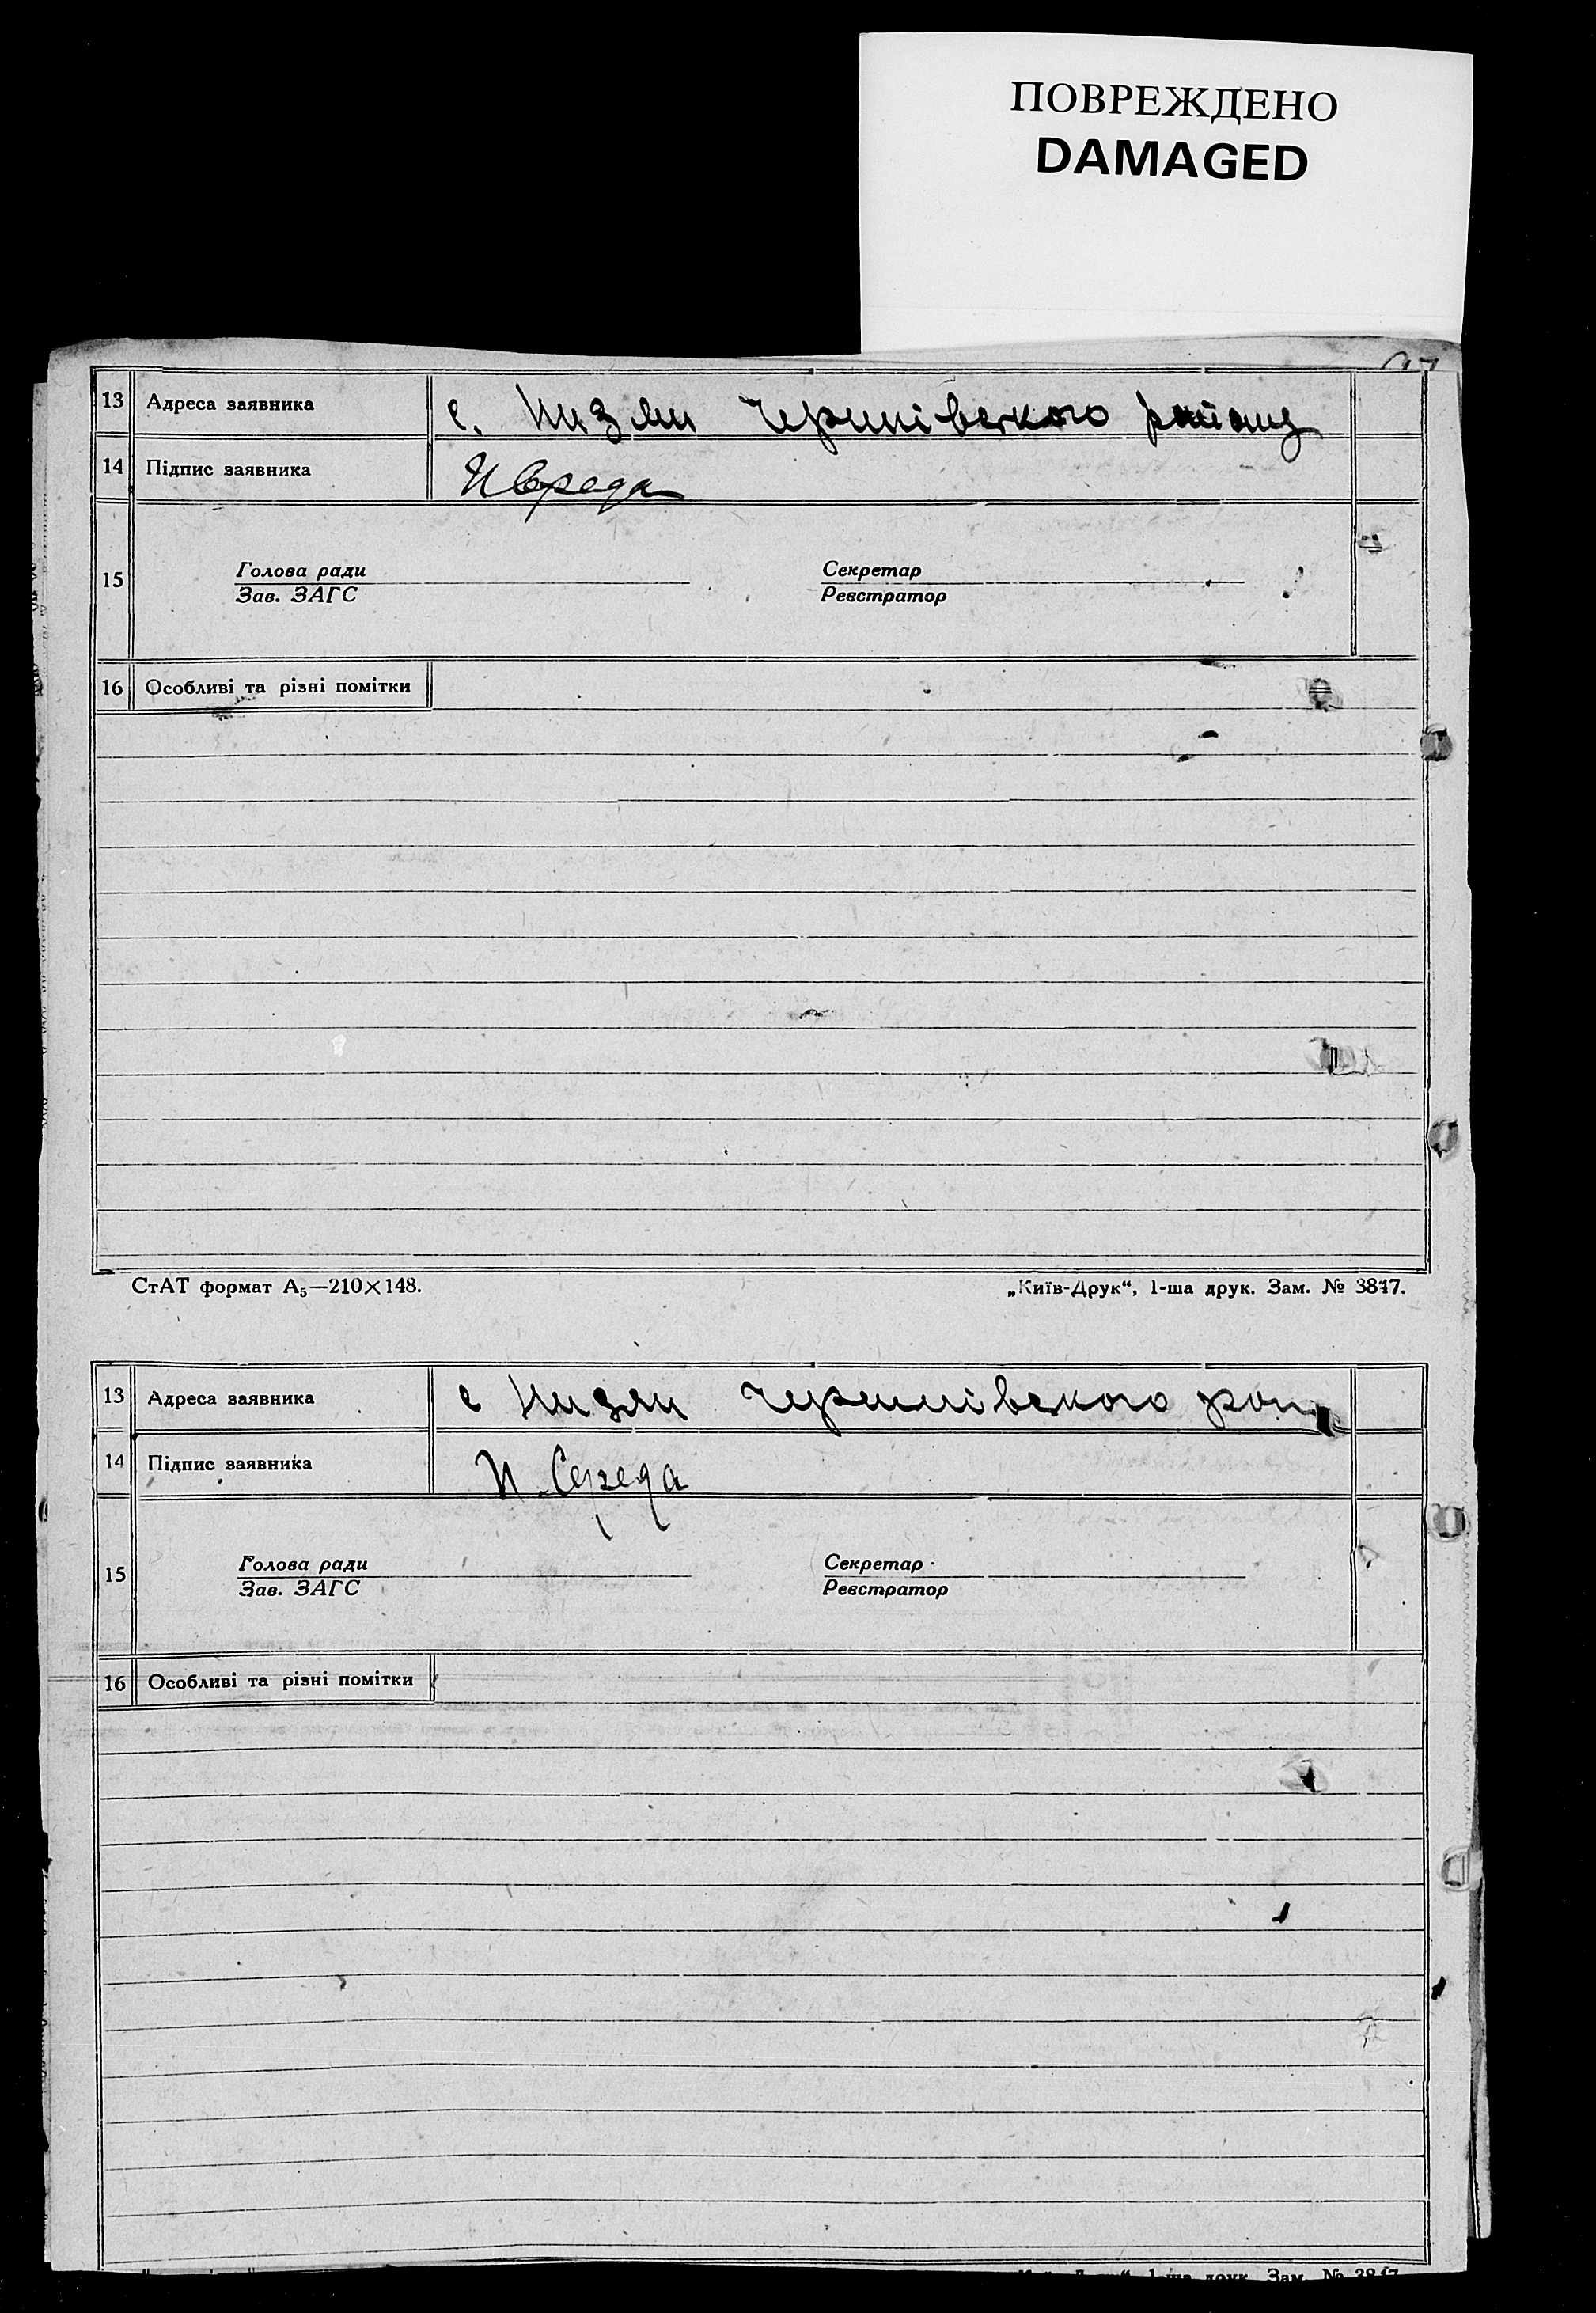 ПОВРЕЖДЕНО
DAMAGED
13 Адреса заявника с. Низли району
14 Підпис заявника
15 Голова ради Секретар
Зав. ЗАГС Реєстратор
16 Особливі та різні помітки
СтАТ формат А₅—210×148. „Київ-Друк“, 1-ша друк. Зам. № 3847.
13 Адреса заявника с Низли
14 Підпис заявника Н. Середа
15 Голова ради Секретар
Зав. ЗАГС Реєстратор
16 Особливі та різні помітки
1-ша друк. Зам. № 3847